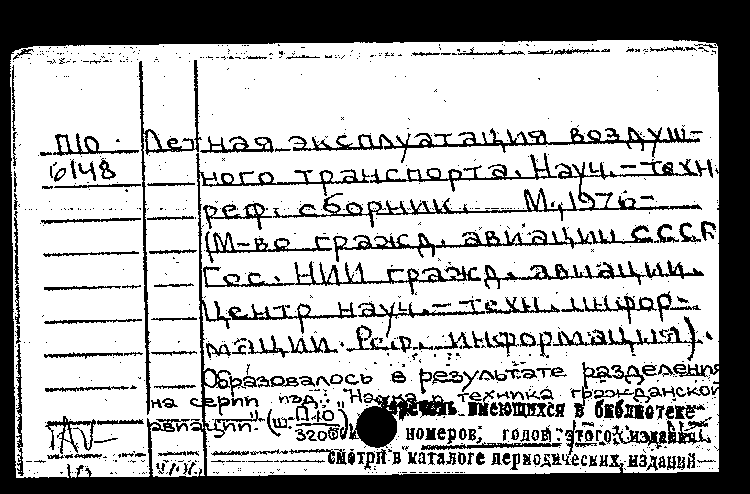 П10 Летная эксплуатация воздуш-
6148 ного транспорта. Науч.-техн.
реф. сборник. М., 1976-
(М-во гражд. авиации СССР
Гос. НИИ гражд. авиации.
Центр науч.-техн. инфор-
мации. Реф. информация).
Образовалось в результате разделения
на серии изд.: "Наука и техника гражданской
авиации" (ш. П10/3206
Перечень имеющихся в библиотеке
номеров, годов этого издания
смотри в каталоге периодических изданий